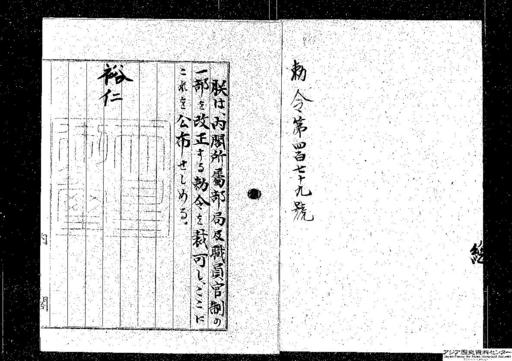 勅令第四百七十九號
朕は、內閣所屬部局及職員官制の
一部を改正する勅令を裁可し、ここに
これを公布せしめる。
裕仁
內閣
アジア歴史資料センター